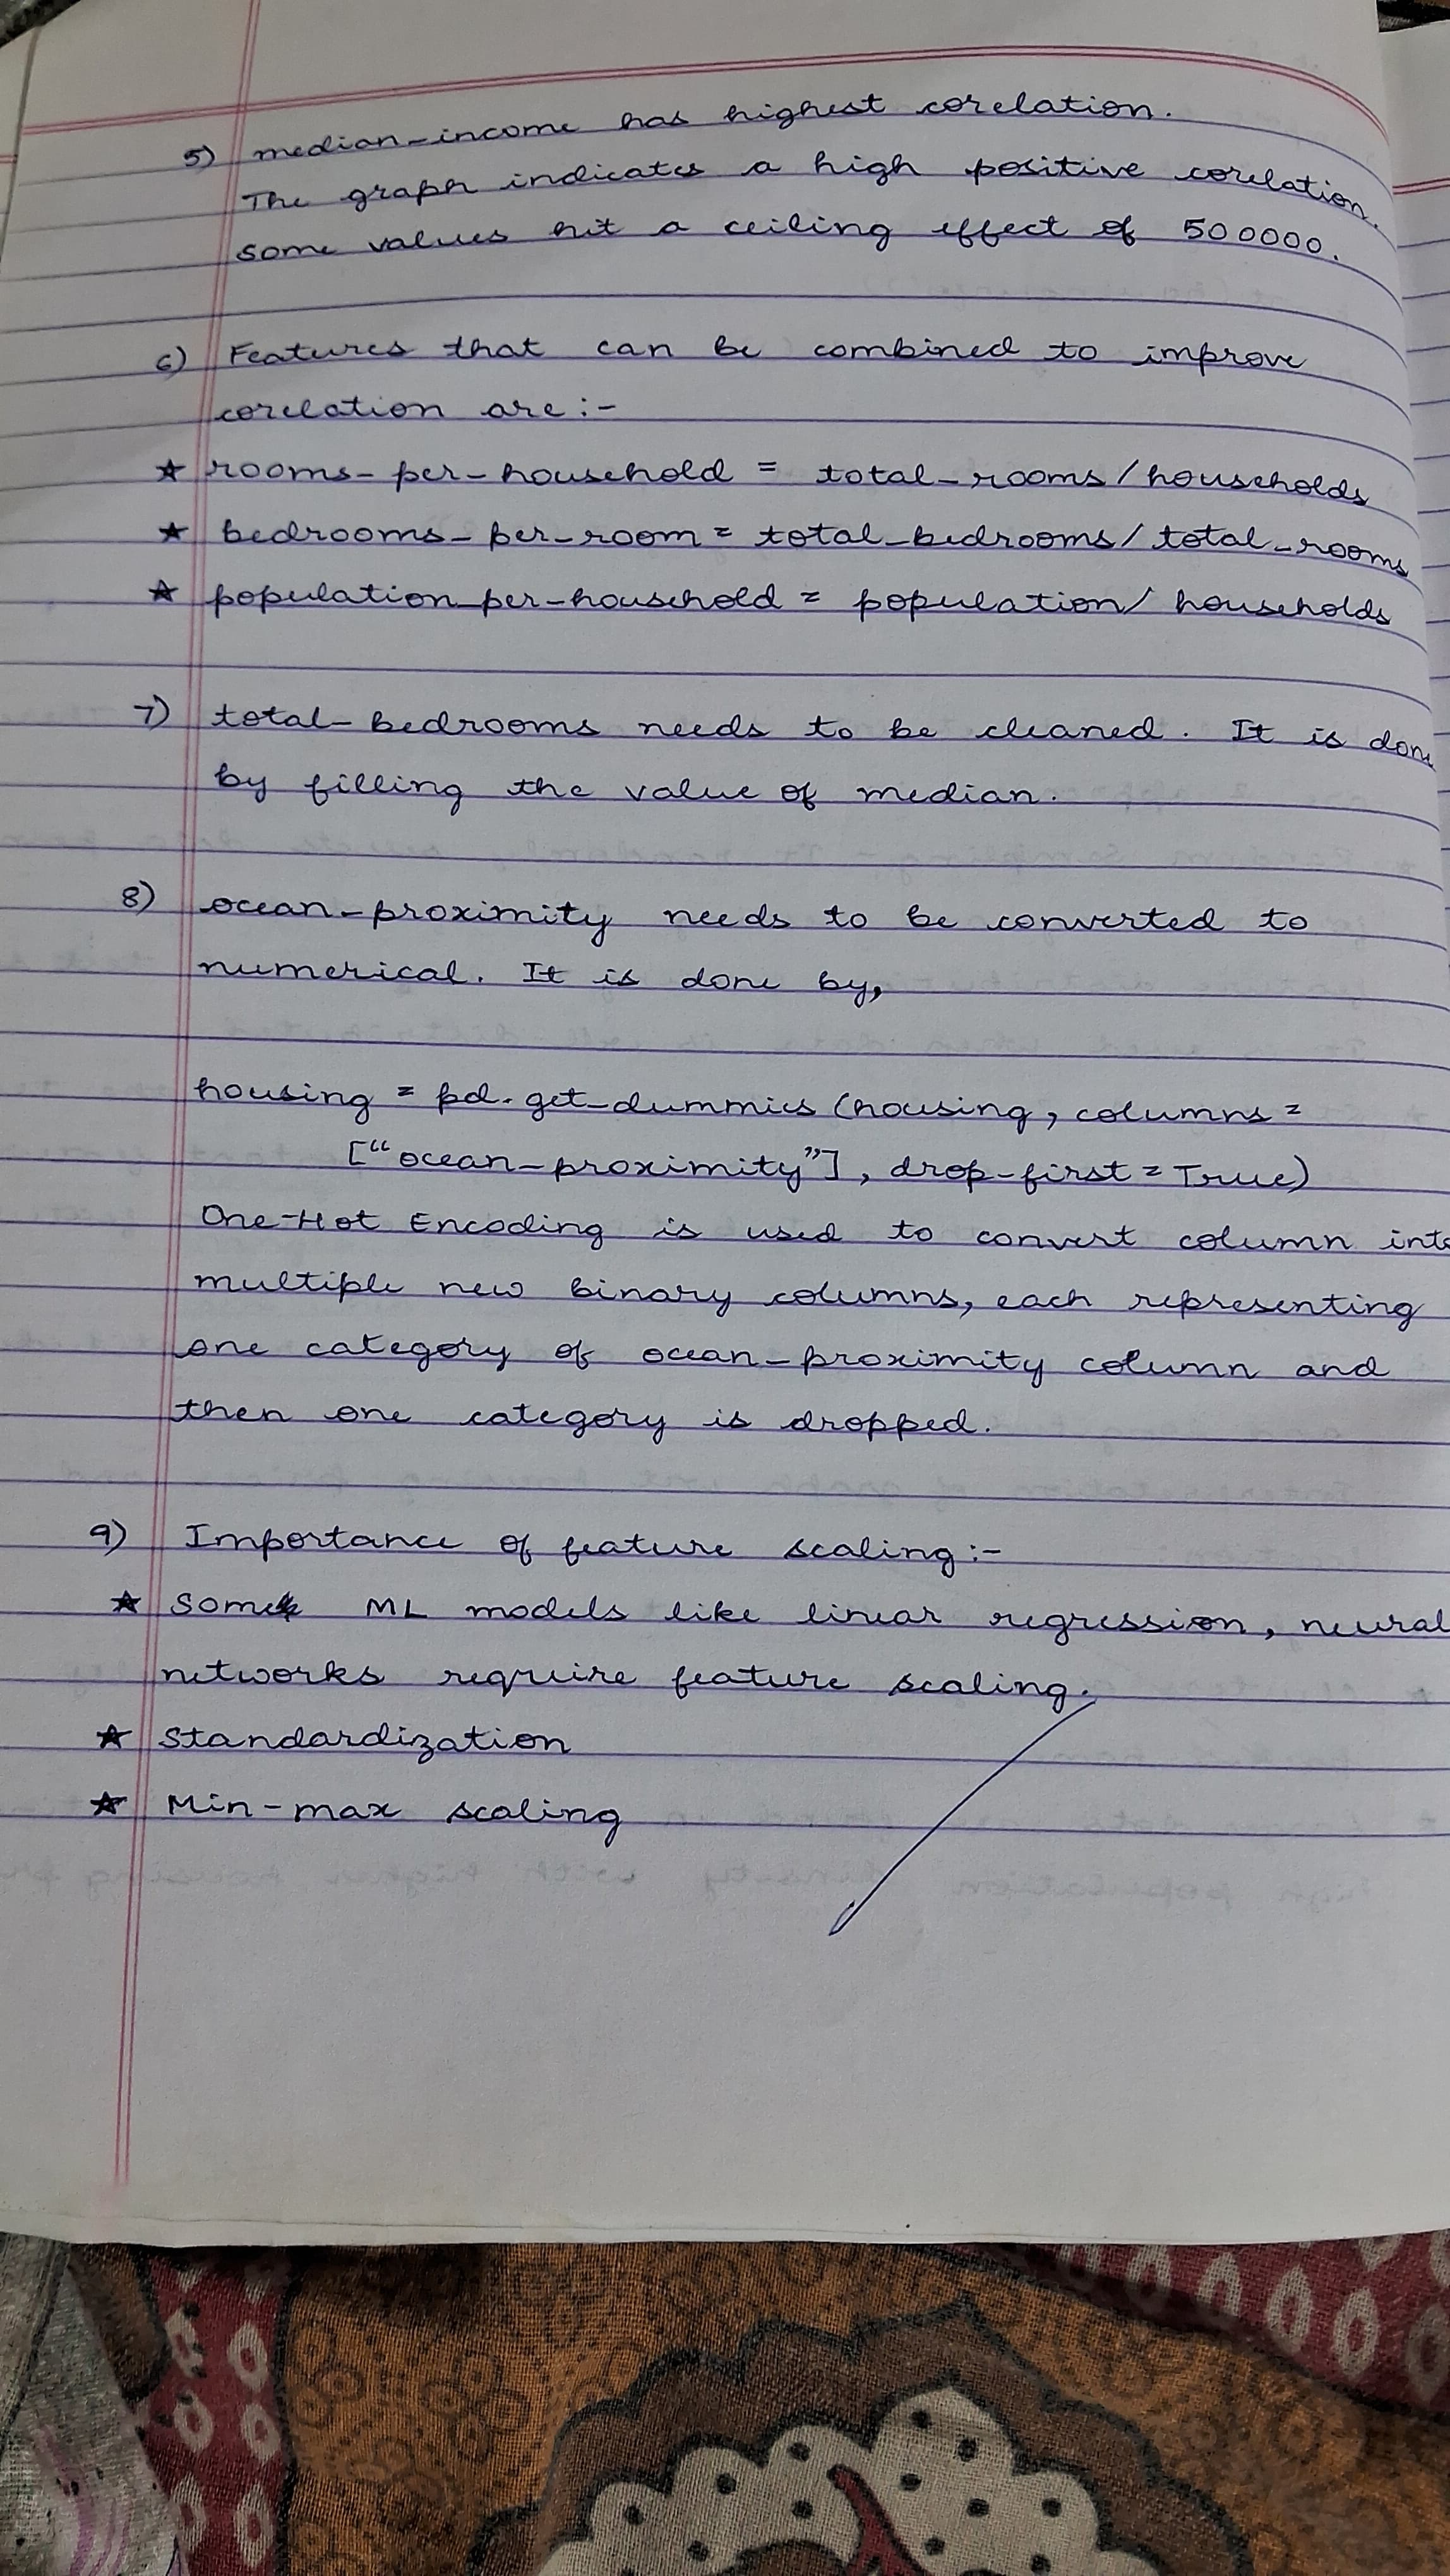 5) median_income has highest corelation.
The graph indicates a high positive corelation.
some values hit a ceiling effect of 500000.
6) Features that can be combined to improve
corelation are :-
★ rooms_per_household = total_rooms / households
★ bedrooms_per_room = total_bedrooms / total_rooms
★ population_per_household = population / households
7) total_bedrooms needs to be cleaned. It is done
by filling the value of median.
8) ocean_proximity needs to be converted to
numerical. It is done by,
housing = pd.get_dummies (housing, columns =
["ocean_proximity"], drop_first = True)
One-Hot Encoding is used to convert column into
multiple new binary columns, each representing
one category of ocean_proximity column and
then one category is dropped.
9) Importance of feature scaling :-
★ Some ML models like linear regression, neural
networks require feature scaling.
★ Standardization
★ Min-max scaling